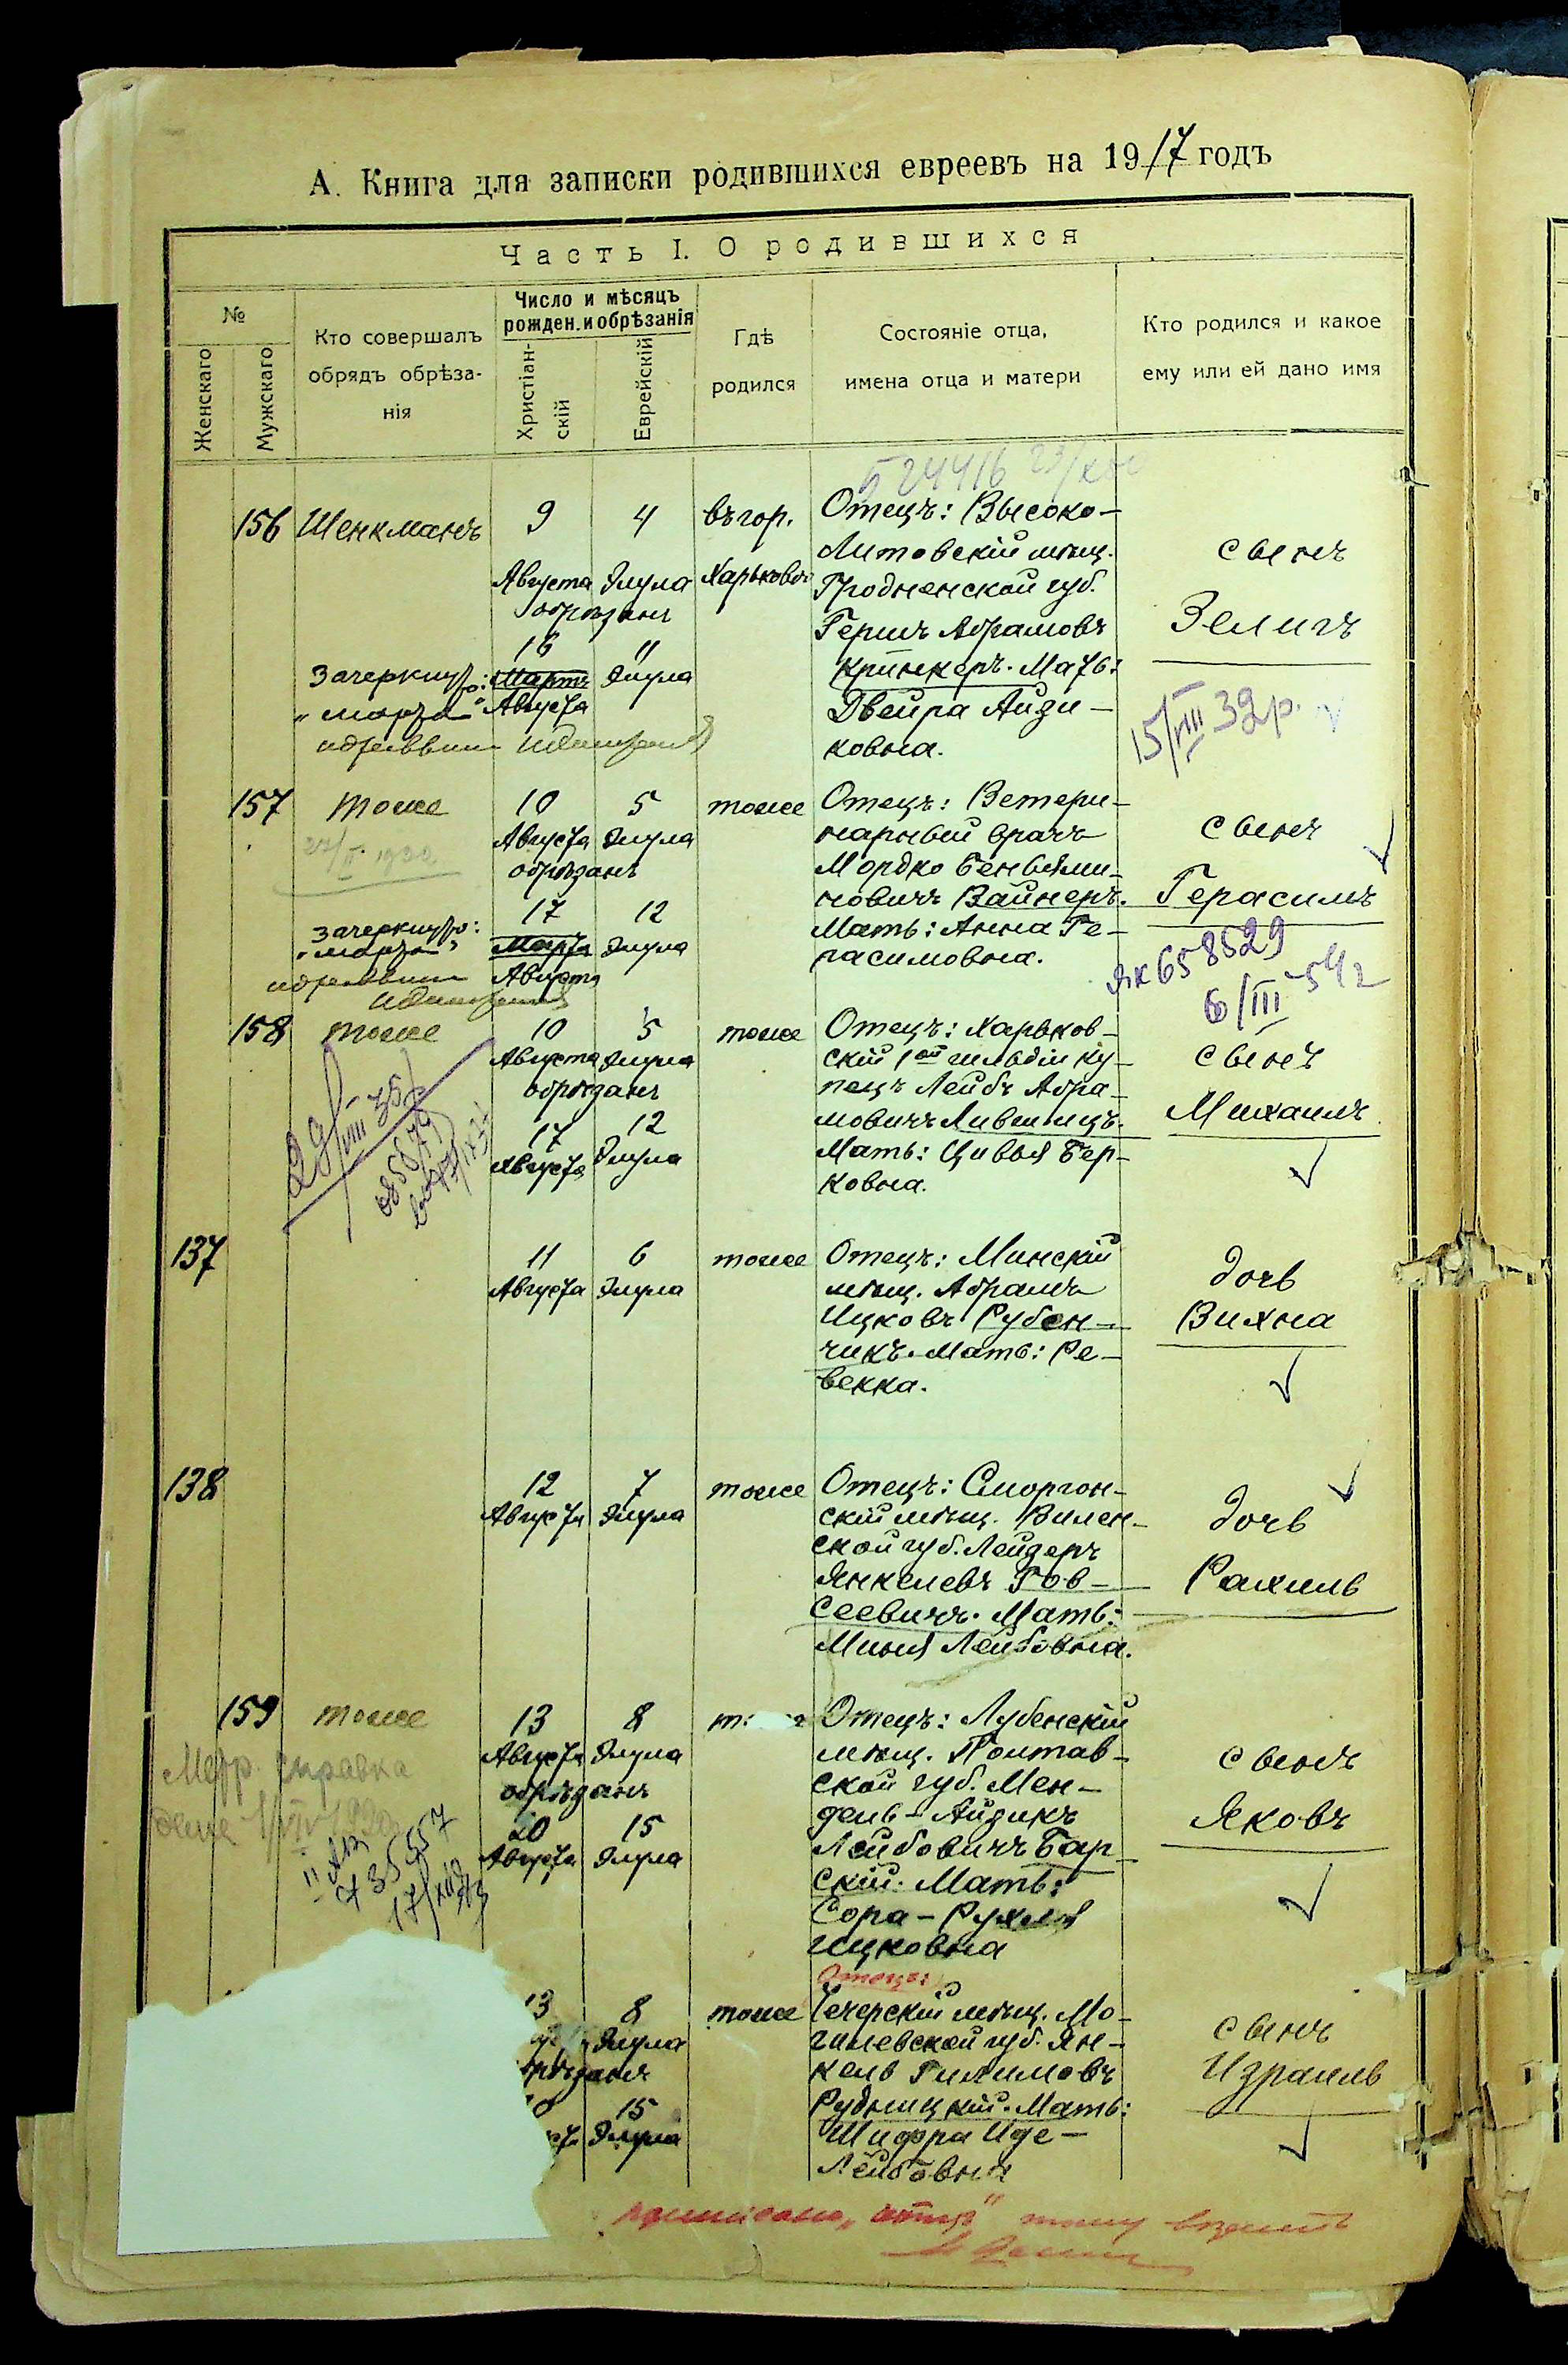 А. Книга для записки родившихся евреевъ на 1917 годъ
Часть I. О родившихся
№
Женскаго
Мужскаго
Кто совершалъ
обрядъ обрѣза-
нія
Число и мѣсяцъ
рожден. и обрѣзанія
Христіан-
скій
Еврейскій
Гдѣ
родился
Состояніе отца,
имена отца и матери
Кто родился и какое
ему или ей дано имя
156
Шенкманъ
9
Августа
обрѣзанъ
16
Мартъ
Августа
4
Элула
11
Элула
зачеркнуто:
„марта"
въ гор.
Харьковѣ
Отецъ: Высоко-
Литовскій мѣщ.
Гродненской губ.
Гершъ Абрамовъ
Кринкеръ. Мать:
Двейра Айзи-
ковна.
сынъ
Зелигъ
15/VIII 32р.
157
тоже
10
Августа
обрѣзанъ
17
Марта
Августа
5
Элула
12
Элула
зачеркнуто:
„марта"
тоже
Отецъ: Ветери-
нарный врачъ
Мордко Беньями-
новичъ Вайнеръ.
Мать: Анна Ге-
расимовна.
сынъ
Герасимъ
ЯК 658529
6/III-54г
158
тоже
29/VIII 35
10
Августа
обрѣзанъ
17
Августа
5
Элула
12
Элула
тоже
Отецъ: Харьков-
скій 1ой гильдіи ку-
пецъ Лейбъ Абра-
мовичъ Лившицъ.
Мать: Цивья Бер-
ковна.
сынъ
Михаилъ
137
11
Августа
6
Элула
тоже
Отецъ: Минскій
мѣщ. Абрамъ
Ицковъ Рубен-
чикъ. Мать: Ре-
векка.
дочь
Вихна
138
12
Августа
7
Элула
тоже
Отецъ: Сморгон-
скій мѣщ. Вилен-
ской губ. Лейзеръ
Янкелевъ Гов-
сеевичъ. Мать:
Миня Лейбовна.
дочь
Рахиль
159
тоже
справка
13
Августа
обрѣзанъ
20
Августа
8
Элула
15
Элула
Отецъ: Лубенскій
мѣщ. Полтав-
ской губ. Мен-
дель-Айзикъ
Лейбовичъ Бар-
скій. Мать:
Сора-Рухля
Ицковна
сынъ
Яковъ
13
8
Элула
15
Элула
тоже
Отецъ:
Чечерскій мѣщ. Мо-
гилевской губ. Ян-
кель Гилимовъ
Рудницкій. Мать:
Шифра Иде-
Лейбовна
сынъ
Израиль